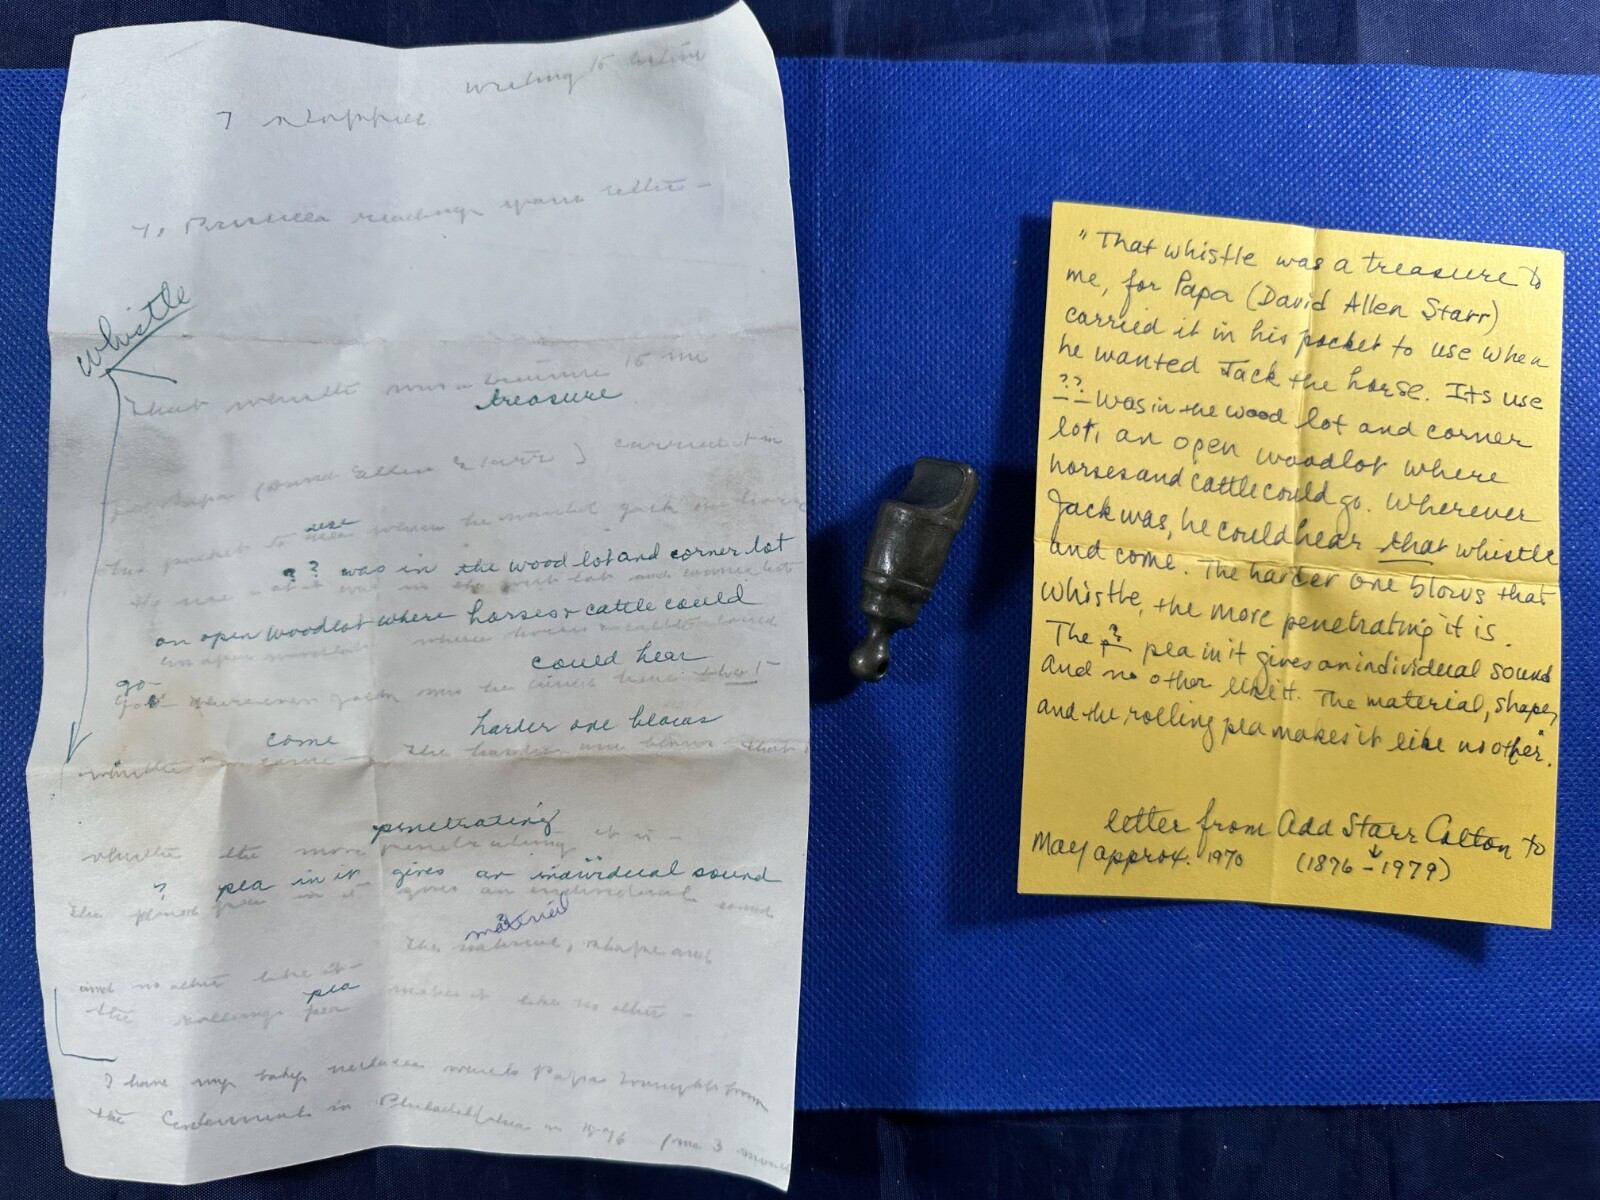 writing to
I stopped
reading your letter -
whistle
That whistle was a treasure to me
treasure
For Papa (David Allen Starr) carried it in
use
his pocket to use when he wanted Jack the horse
? ? was in the wood lot and corner lot
was in the wood lot and corner lot
an open woodlot where horses & cattle could
an open woodlot where horses & cattle could
could hear
go -
go - wherever Jack was he could hear that
come harder one blows
whistle come - The harder one blows that
penetrating
whistle the more penetrating it is -
? pea in it gives an individual sound
The pea in it gives an individual sound
material
The material, shape and
and no other like it -
pea
the rolling pea makes it like no other -
I have my baby necklace Papa brought from
the Centennial in Philadelphia in 1876
"That whistle was a treasure to
me, for Papa (David Allen Starr)
carried it in his pocket to use when
he wanted Jack the horse. Its use
?? was in the wood lot and corner
lot, an open woodlot where
horses and cattle could go. Wherever
Jack was, he could hear that whistle
and come. The harder one blows that
whistle, the more penetrating it is.
The p? pea in it gives an individual sound
and no other like it. The material, shape,
and the rolling pea makes it like no other".
letter from Add Starr Colton to
May approx. 1970 (1876 - 1979)